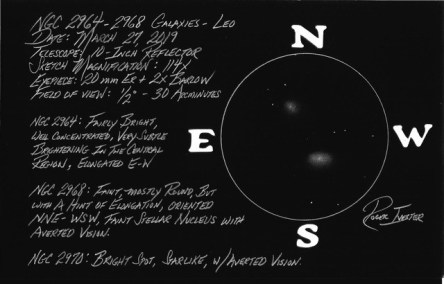 NGC 2964-2968 Galaxies - Leo
Date: March 27, 2019
Telescope: 10-Inch Reflector
Sketch Magnification: 114x
Eyepiece: 20 mm Er + 2x Barlow
Field of view: 1/2° - 30 Arcminutes
NGC 2964: Fairly Bright,
Well Concentrated, Very Subtle
Brightening In The Central
Region, Elongated E-W
NGC 2968: Faint, mostly Round, But
with A Hint of Elongation, oriented
NNE-WSW, Faint Stellar Nucleus with
Averted Vision.
NGC 2970: Bright Spot, Starlike, w/Averted Vision.
N
E
W
S
Roger Ivester